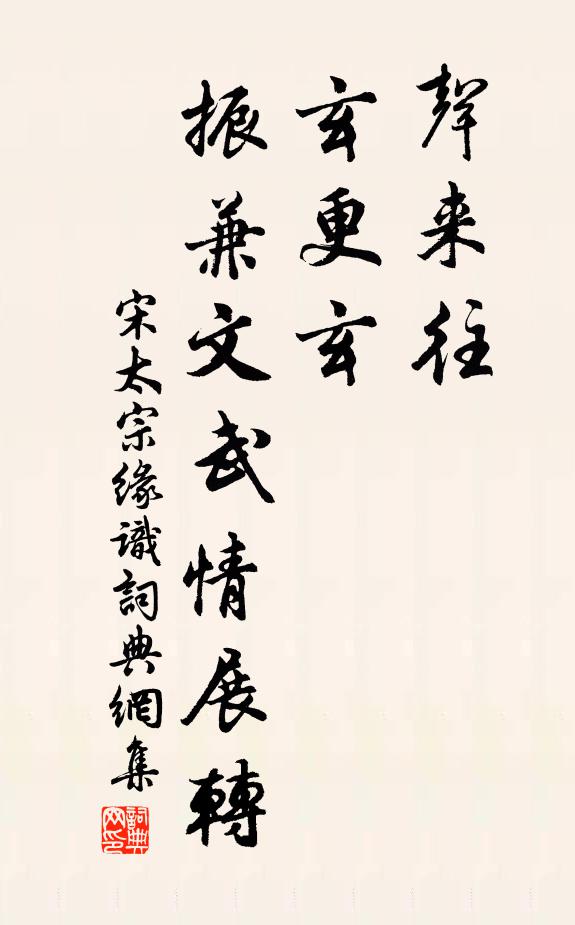 聲来往
玄更玄
振兼文武情展轉
宋太宗緣識詞典網集
詞典
网印